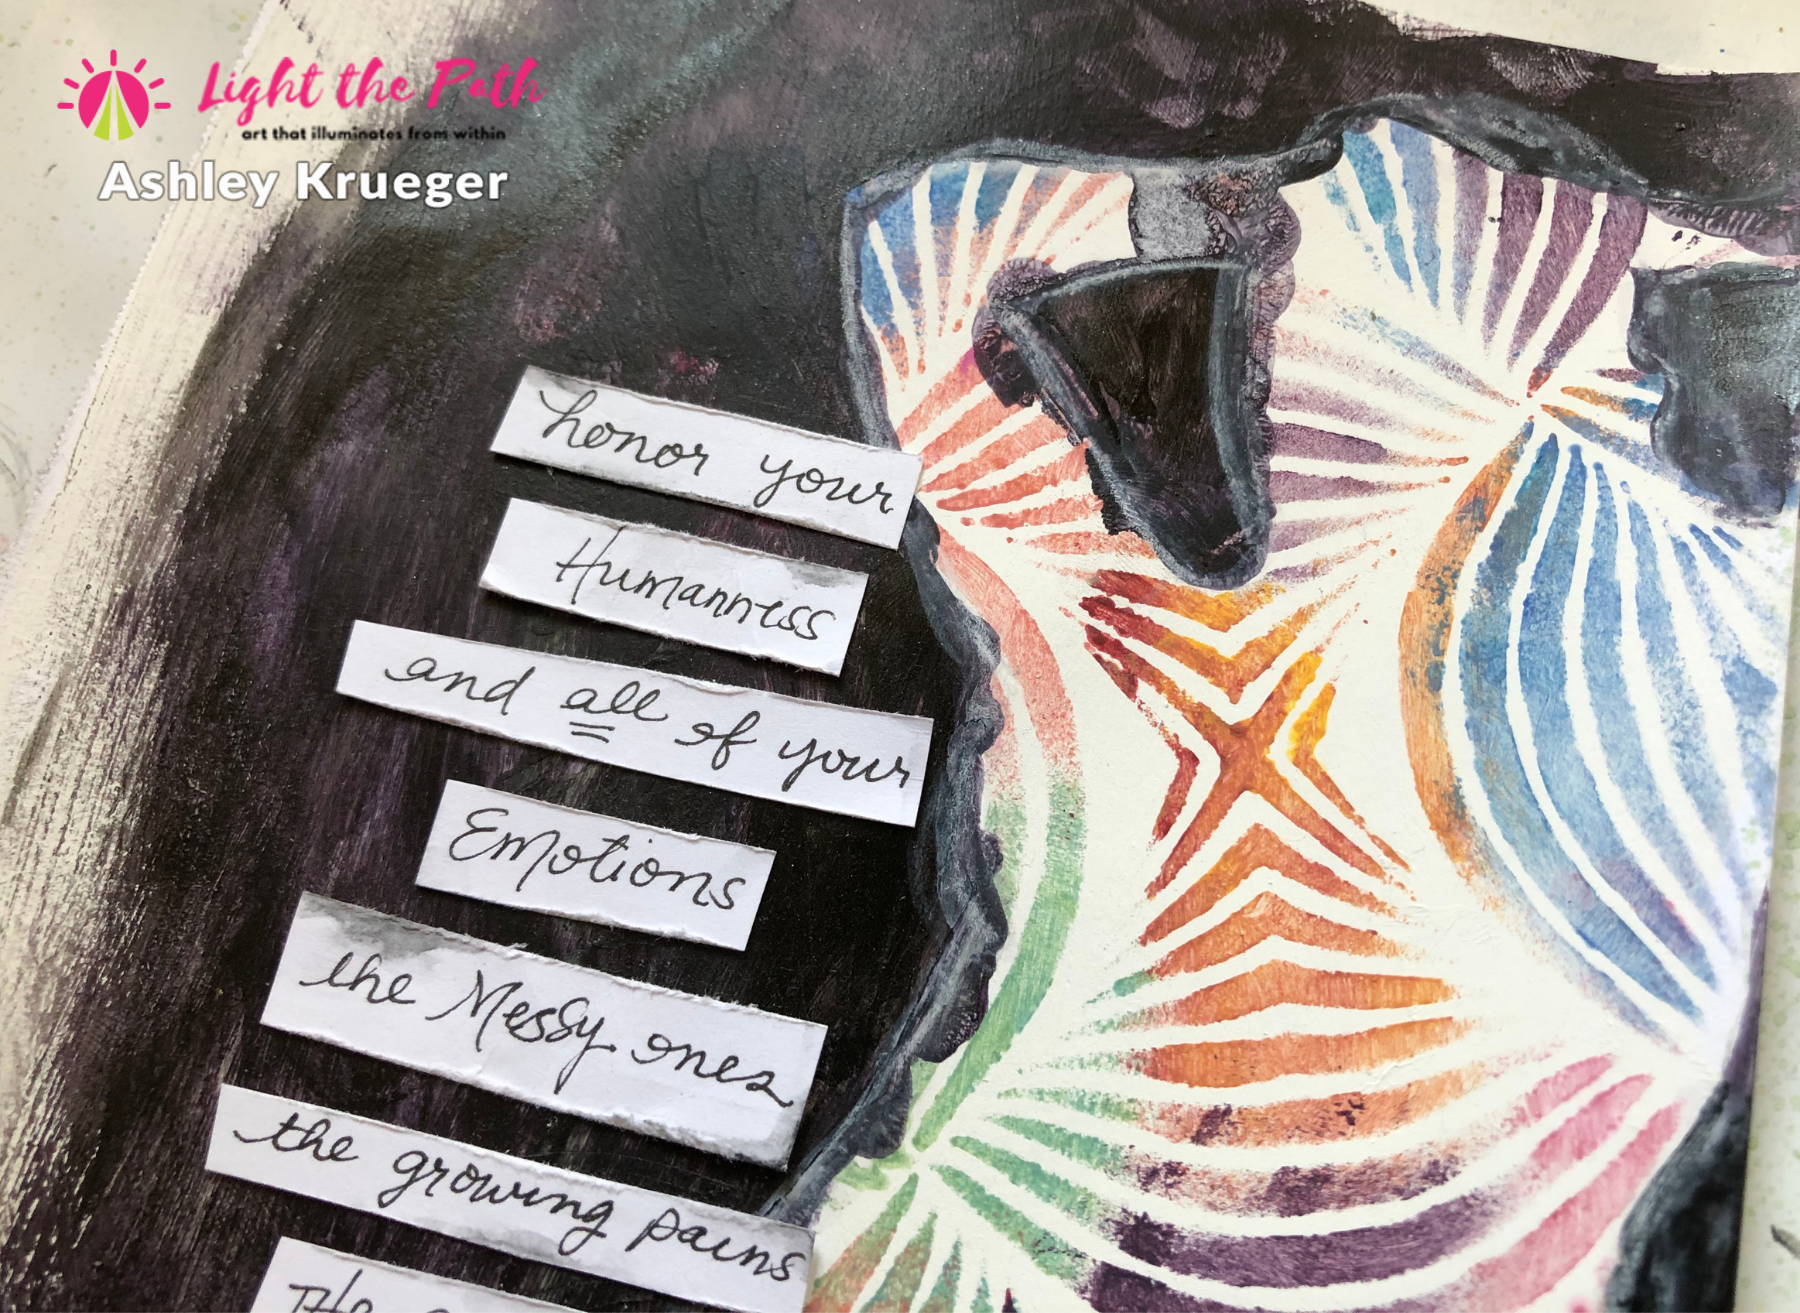 Light the Path
art that illuminates from within
Ashley Krueger
honor your
Humanness
and all of your
Emotions
the Messy ones
the growing pains
The